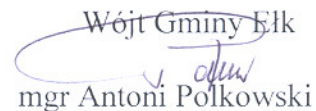 Wójt Gminy Ełk
mgr Antoni Polkowski